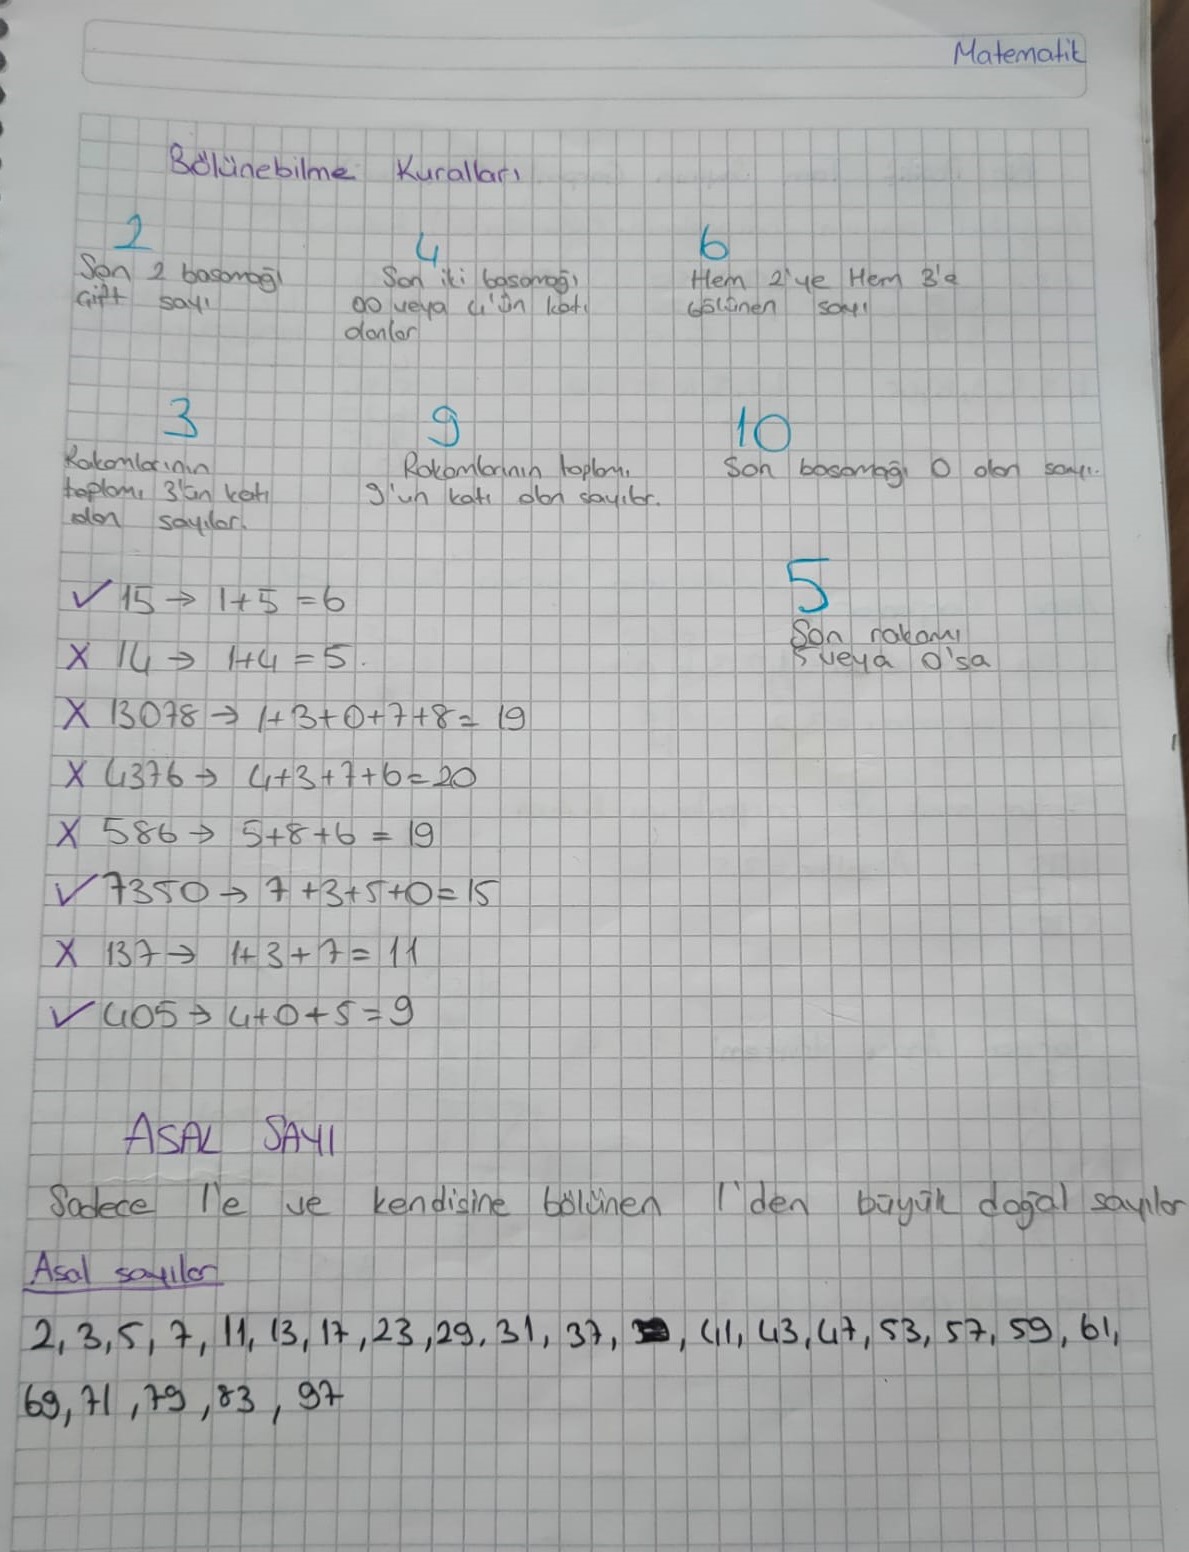 Matematik
Bölünebilme Kuralları
2
Son 2 basamağı
Çift sayı
4
Son iki basamağı
00 veya 4'ün katı
olanlar
6
Hem 2'ye Hem 3'e
bölünen sayı
3
Rakamlarının
toplamı 3'ün katı
olan sayılar.
9
Rakamlarının toplamı
9'un katı olan sayılar.
10
Son basamağı 0 olan sayı.
5
Son rakamı
5 veya 0'sa
✓ 15 → 1+5 = 6
X 14 → 1+4 = 5.
X 13078 → 1+3+0+7+8 = 19
X 4376 → 4+3+7+6 = 20
X 586 → 5+8+6 = 19
✓ 7350 → 7+3+5+0 = 15
X 137 → 1+3+7 = 11
✓ 405 → 4+0+5 = 9
ASAL SAYI
Sadece 1'e ve kendisine bölünen 1'den büyük doğal sayılar
Asal sayılar
2, 3, 5, 7, 11, 13, 17, 23, 29, 31, 37, , 41, 43, 47, 53, 57, 59, 61,
69, 71, 79, 83, 97